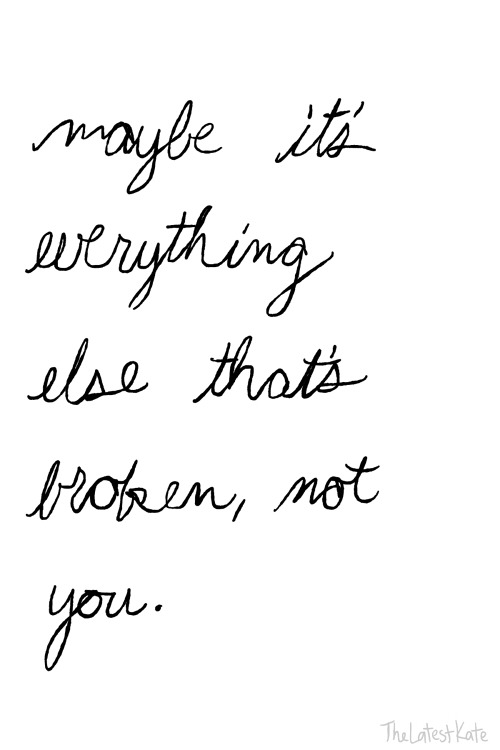 maybe it's
everything
else that's
broken, not
you.
TheLatestKate